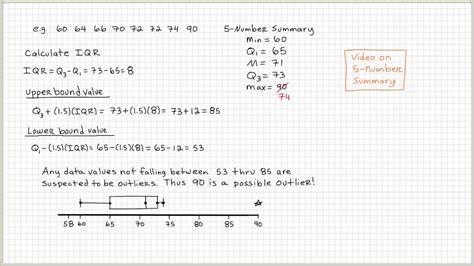 e.g. 60 64 66 70 72 72 74 90
5-Number Summary
min = 60
Q₁ = 65
M = 71
Q₃ = 73
max = 90
74
Video on
5-Number
Summary
Calculate IQR
IQR = Q₃-Q₁ = 73-65 = 8
Upper bound value
Q₃ + (1.5)(IQR) = 73 + (1.5)(8) = 73 + 12 = 85
Lower bound value
Q₁ - (1.5)(IQR) = 65 - (1.5)(8) = 65 - 12 = 53
Any data values not falling between 53 thru 85 are
suspected to be outliers. Thus 90 is a possible outlier!
58 60 65 70 75 80 85 90